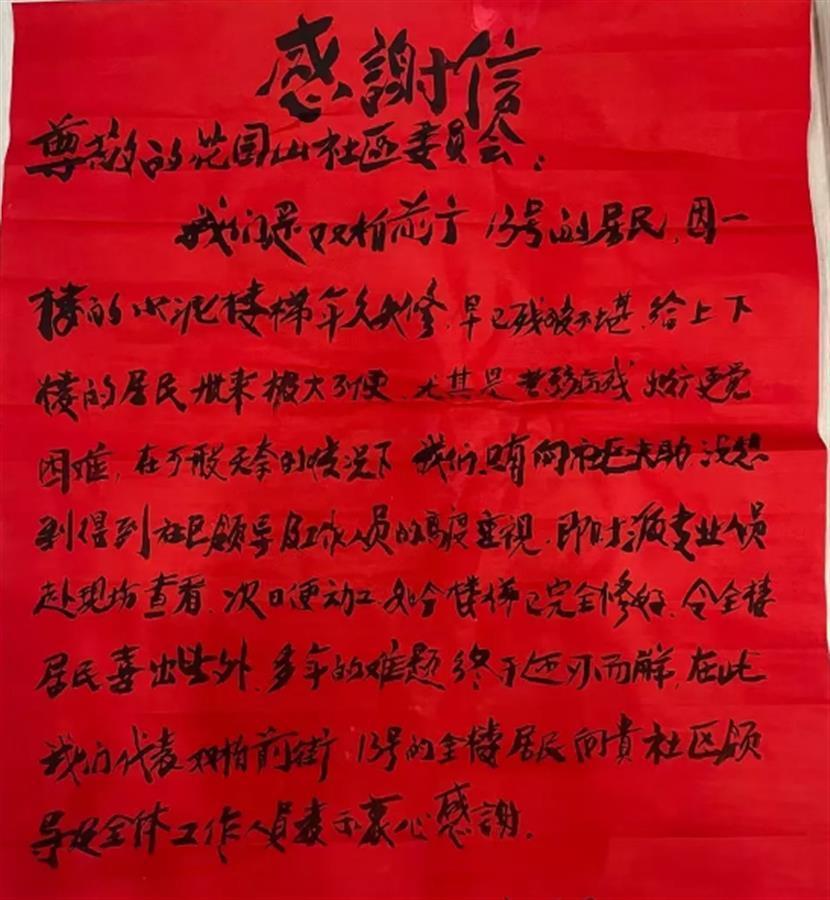 感謝信
尊敬的花园山社区委员会：
我们是双柏前街13号的居民，因一
楼的水泥楼梯年久失修，早已残破不堪，给上下
楼的居民带来极大不便，尤其是老弱病残出行更觉
困难，在万般无奈的情况下我们只有向社区求助，没想
到得到社区领导及工作人员的高度重视，即时派专业人员
赴现场查看，次日便动工，如今楼梯已完全修好，令全楼
居民喜出望外，多年的难题终于迎刃而解，在此
我们代表双柏前街13号的全楼居民向貴社区领
导及全体工作人员表示衷心感謝。